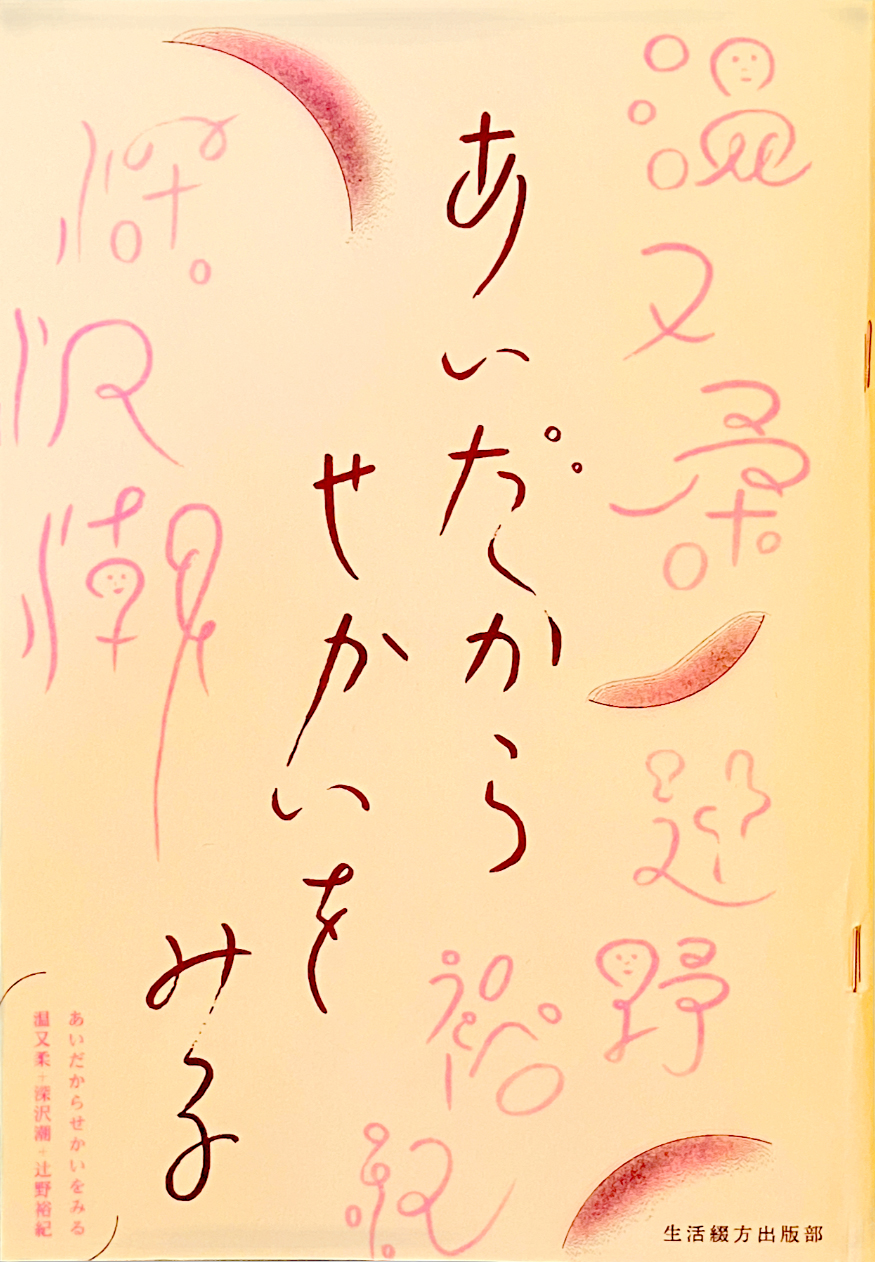 温又柔
辻野裕紀
あいだから
せかいを
みる
深沢潮
あいだからせかいをみる
温又柔+深沢潮+辻野裕紀
生活綴方出版部